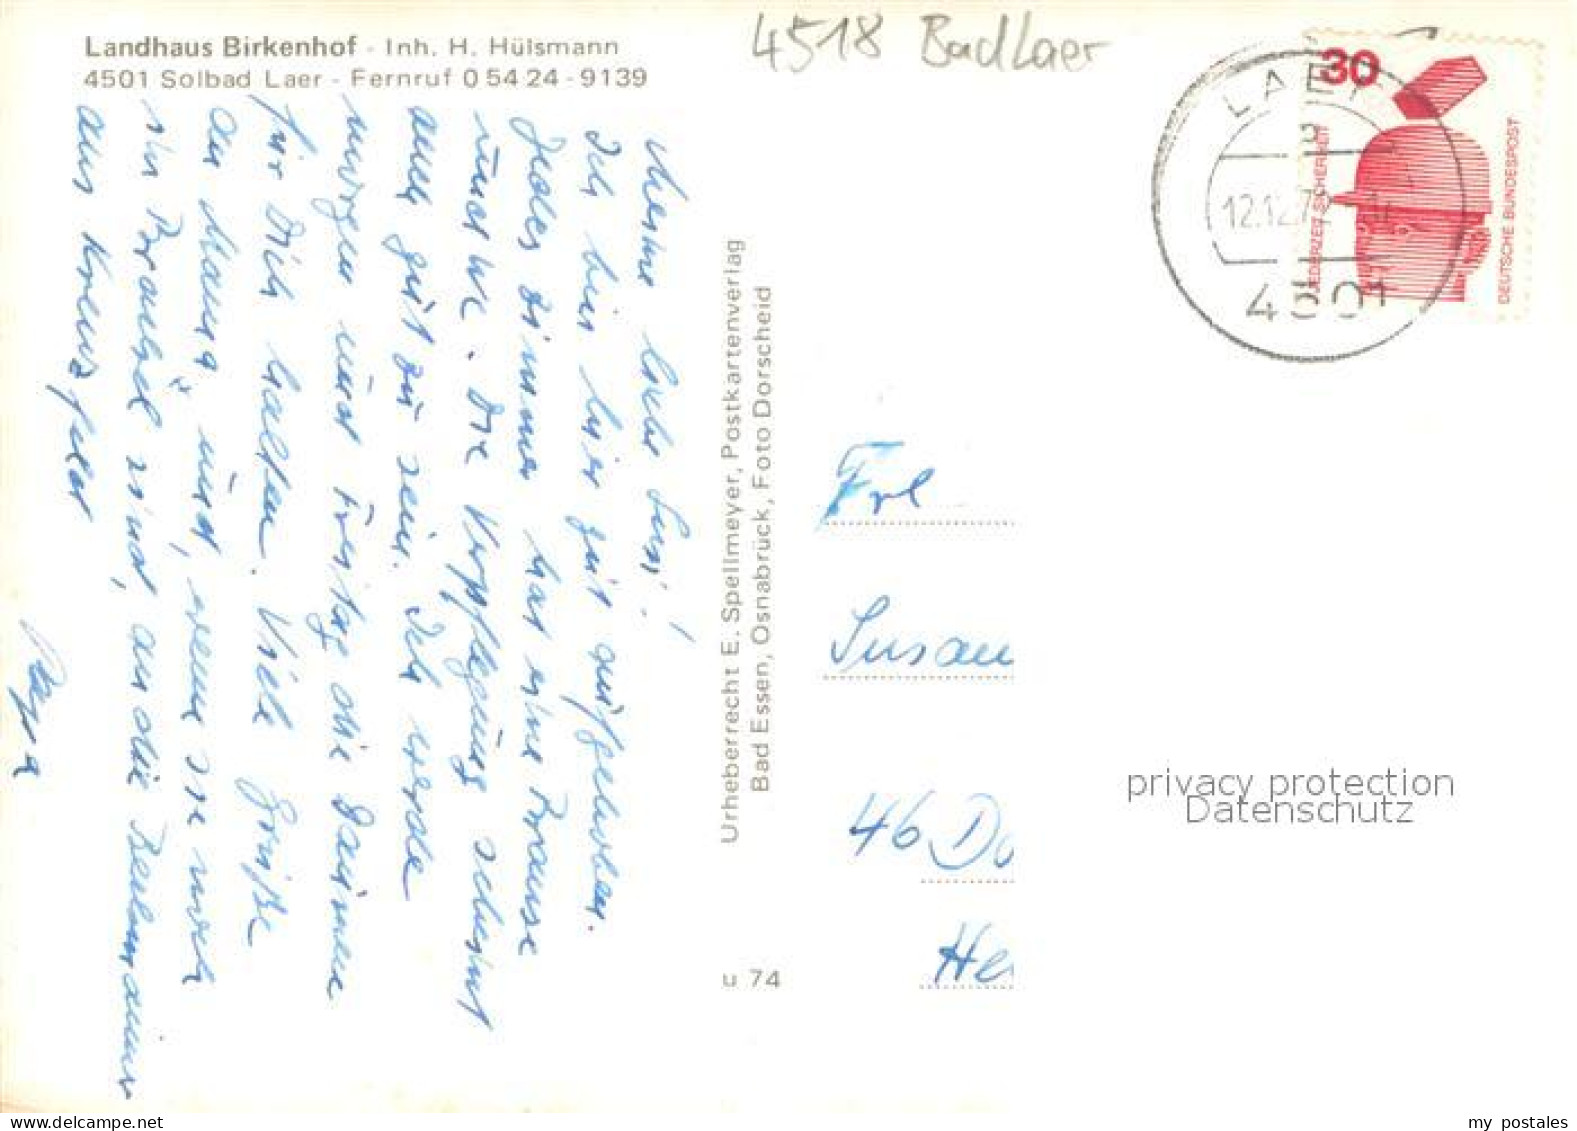 Landhaus Birkenhof - Inh. H. Hülsmann
4501 Solbad Laer - Fernruf 0 54 24 - 9139
4518 Bad Laer
30
JEDERZEIT SICHERHEIT
DEUTSCHE BUNDESPOST
LAER
12.12.7
4501
Meine liebe Susi!
Ich bin hier gut aufgehoben.
Jedes Zimmer hat eine Brause
und WC. Die Verpflegung scheint
auch gut zu sein. Ich werde
morgen und Freitag die Daumen
für Dich halten. Viele Grüße
an Mama, und, wenn sie noch
in sind, an die
aus
Papa
Urheberrecht E. Spellmeyer, Postkartenverlag
Bad Essen, Osnabrück, Foto Dorscheid
u 74
Frl
Susan
46 Do
He
privacy protection
Datenschutz
my postales